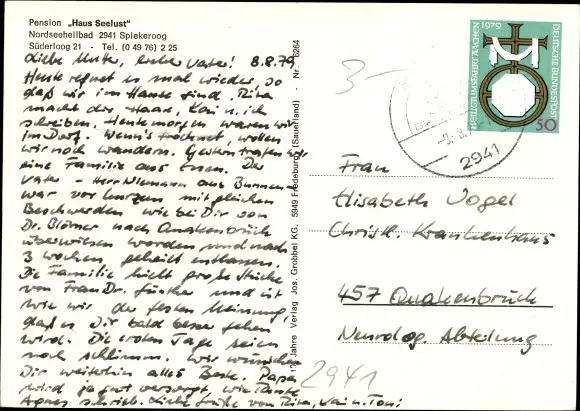 Pension „Haus Seelust"
Nordseeheilbad 2941 Spiekeroog
Süderloog 21 - Tel. (0 49 76) 2 25
Liebe Mutter, lieber Vater! 8.8.79
Heute regnet es mal wieder, so
daß wir im Hause sind. Rita
macht der Haare, Kai u. ich
schreiben. Heute morgen waren wir
im Dorf. Wenn's trocknet, wollen
wir noch wandern. Gestern trafen wir
eine Familie aus Essen. Der
Vater - Herr Niemann aus Bunnen
war vor kurzem mit gleichen
Beschwerden wie bei Dir von
Dr. Blömer nach Quakenbrück
überwiesen worden und nach
3 Wochen geheilt entlassen.
Die Familie hielt große Stücke
von Frau Dr. Günther und ist
wie wir der festen Meinung,
daß es Dir bald besser gehen
wird. Die ersten Tage seien
noch schlimm. Wir wünschen
Dir weiterhin alles Beste. Papa
wird ja gut versorgt, wie Tante
Agnes schrieb. Liebe Grüße von Rita, Kai u. Toni
Jahre Verlag Jos. Grobbel KG, 5949 Fredeburg (Sauerland) - Nr. 6264
3-
1979
WALLFAHRT AACHEN
DEUTSCHE BUNDESPOST
50
2941
Frau
Elisabeth Vogel
Christl. Krankenhaus
457 Quakenbrück
Neurolog. Abteilung
2941